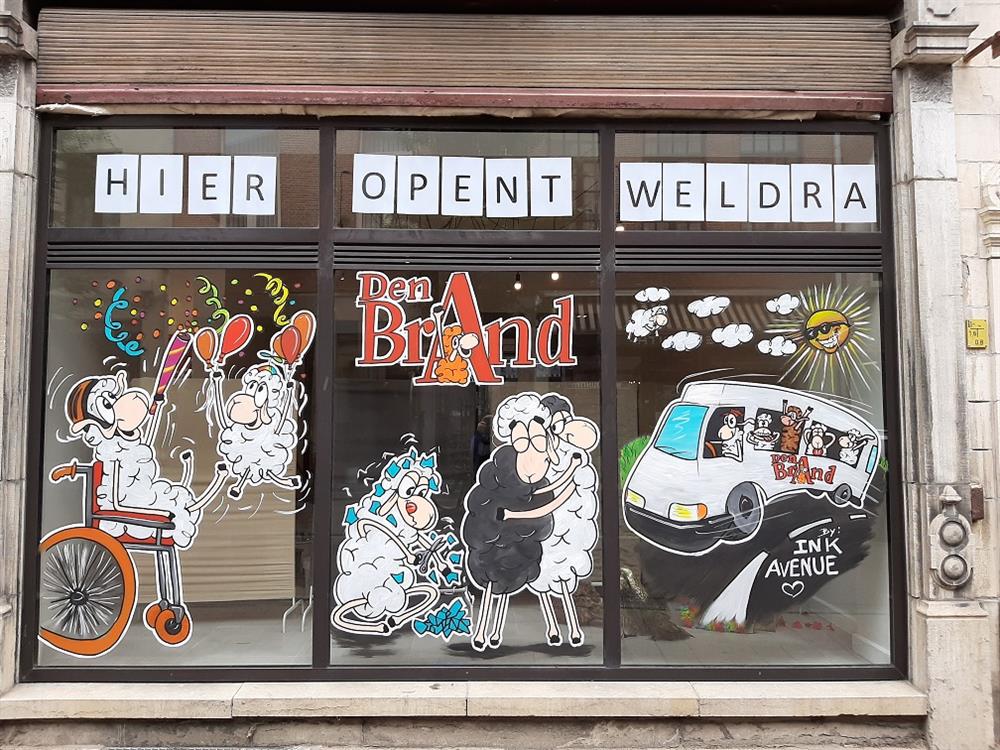 HIER OPENT WELDRA
Den
BrAnd
Den
BrAnd
By:
INK
AVENUE